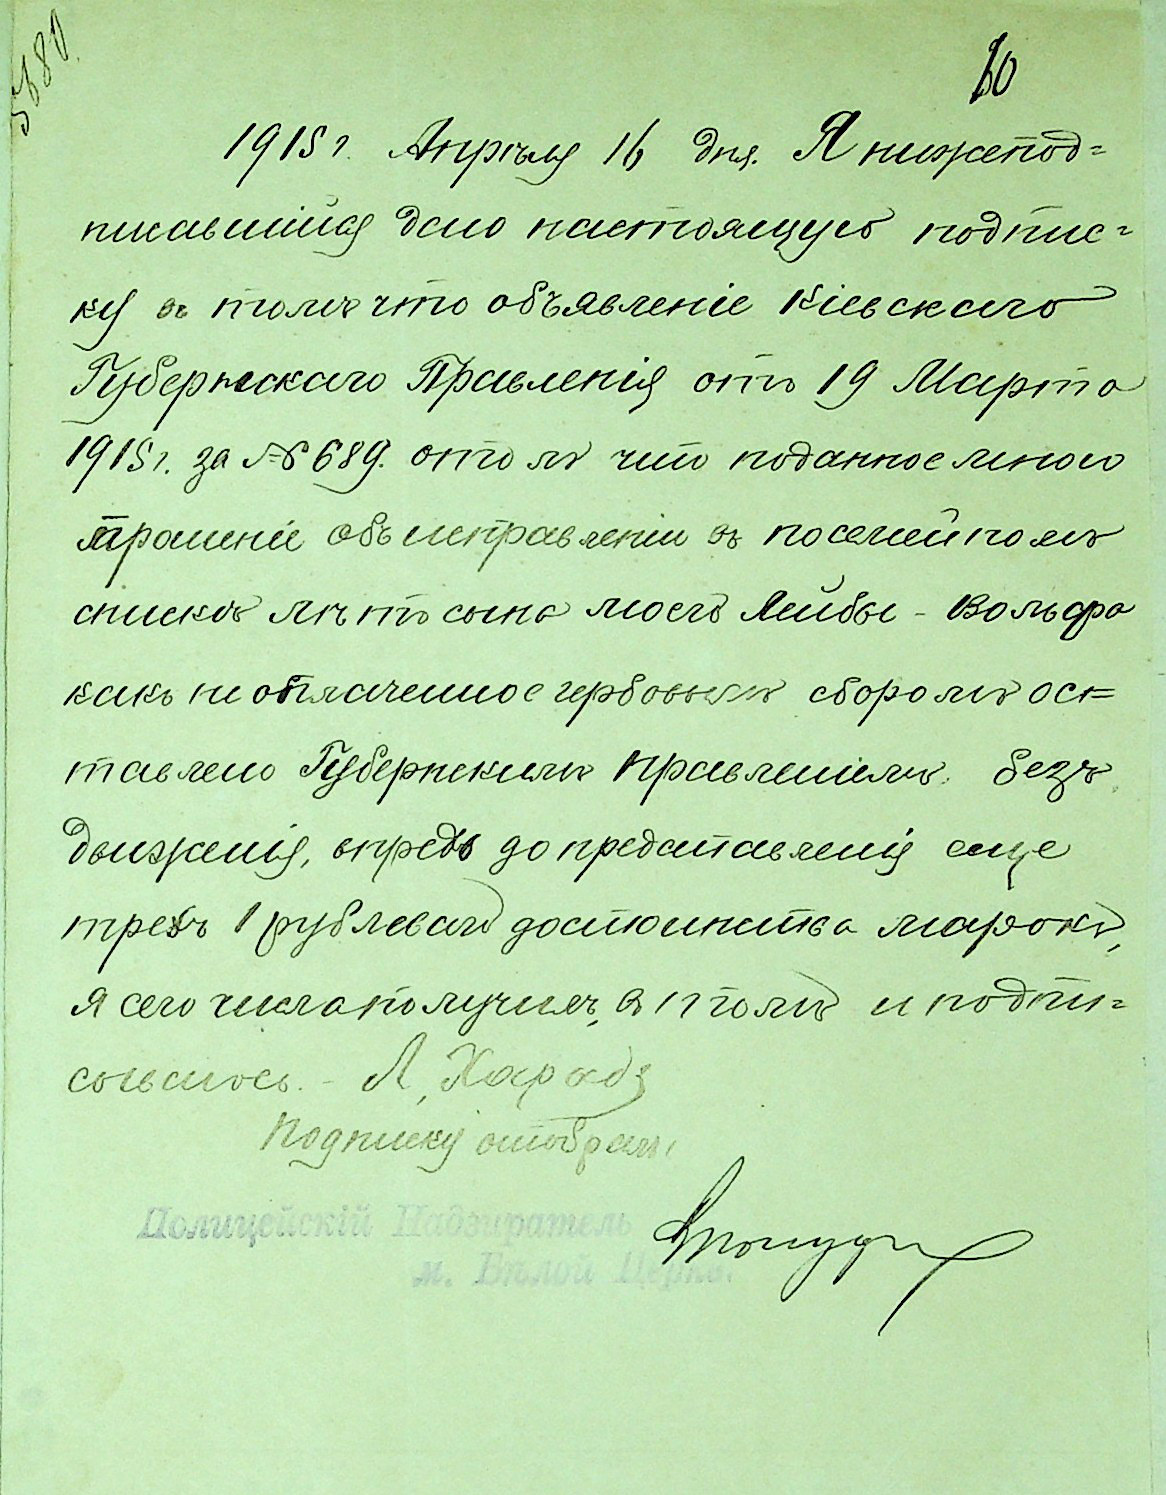 5880.
80
1915 г. Апрѣля 16 дня. Я нижепод=
писавшійся даю настоящую подпис=
ку въ томъ что объявленіе Кіевскаго
Губернскаго Правленія отъ 19 Марта
1915 г. за № 689. о томъ что поданное мною
прошеніе объ исправленіи въ посемейномъ
спискѣ лѣтъ сына моего Лейбы - Вольфа
какъ не оплаченное гербовымъ сборомъ ос=
тавлено Губернскимъ Правленіемъ безъ
движенія, впредь до представленія еще
трехъ 1 рублеваго достоинства марокъ,
я сего числа получилъ, въ томъ и подпи=
сываюсь. - Л. Харадз
Подписку отобралъ,
Полицейскій Надзиратель
м. Бѣлой Церкв.